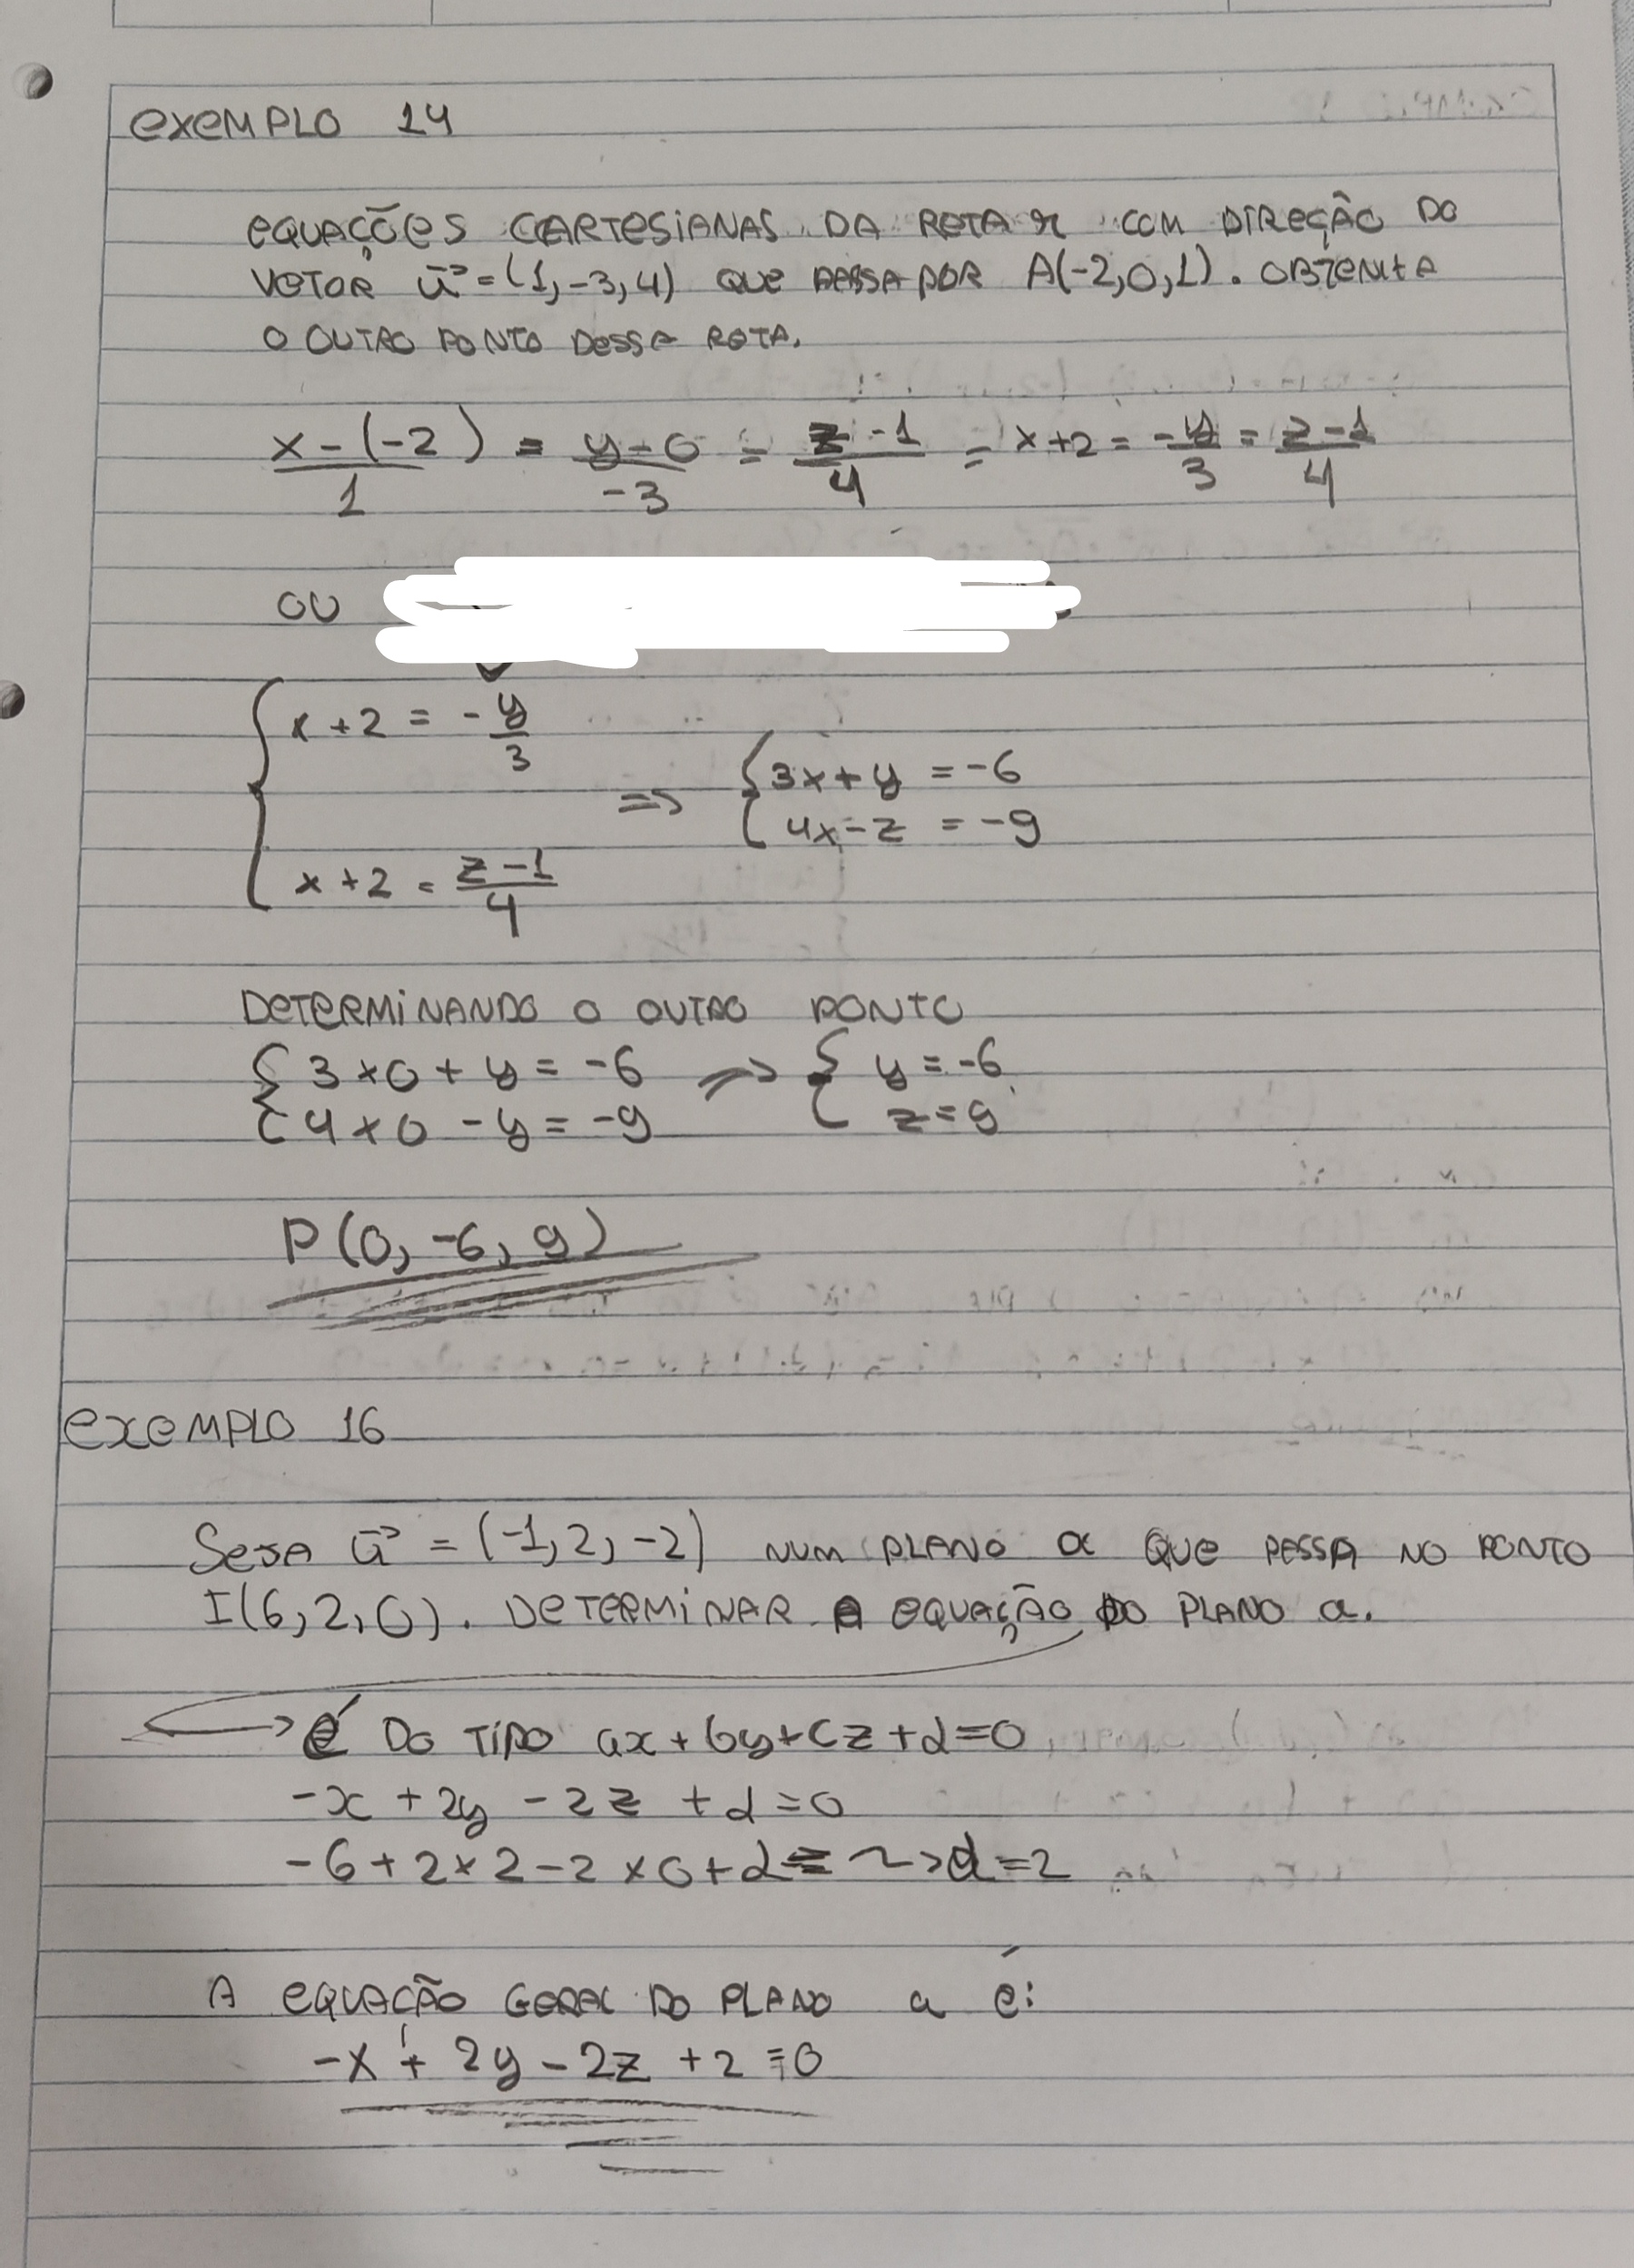 EXEMPLO 14
EQUAÇÕES CARTESIANAS DA RETA r COM DIREÇÃO DO
VETOR u⃗ = (1, -3, 4) QUE PASSA POR A(-2, 0, 1). OBTENHA
O OUTRO PONTO DESSA RETA.
x - (-2)/1 = y - 0/-3 = z - 1/4 = x + 2 = -y/3 = z - 1/4
OU
{ x + 2 = -y/3
=> { 3x + y = -6
4x - z = -9
x + 2 = z - 1/4
DETERMINANDO O OUTRO PONTO
{ 3 x 0 + y = -6 => { y = -6
{ 4 x 0 - y = -9 z = 9
P(0, -6, 9)
EXEMPLO 16
SEJA u⃗ = (-1, 2, -2) NUM PLANO α QUE PASSA NO PONTO
I(6, 2, 0). DETERMINAR A EQUAÇÃO DO PLANO α.
É DO TIPO ax + by + cz + d = 0
-x + 2y - 2z + d = 0
-6 + 2 x 2 - 2 x 0 + d = ~> d = 2
A EQUAÇÃO GERAL DO PLANO α É:
-x + 2y - 2z + 2 = 0